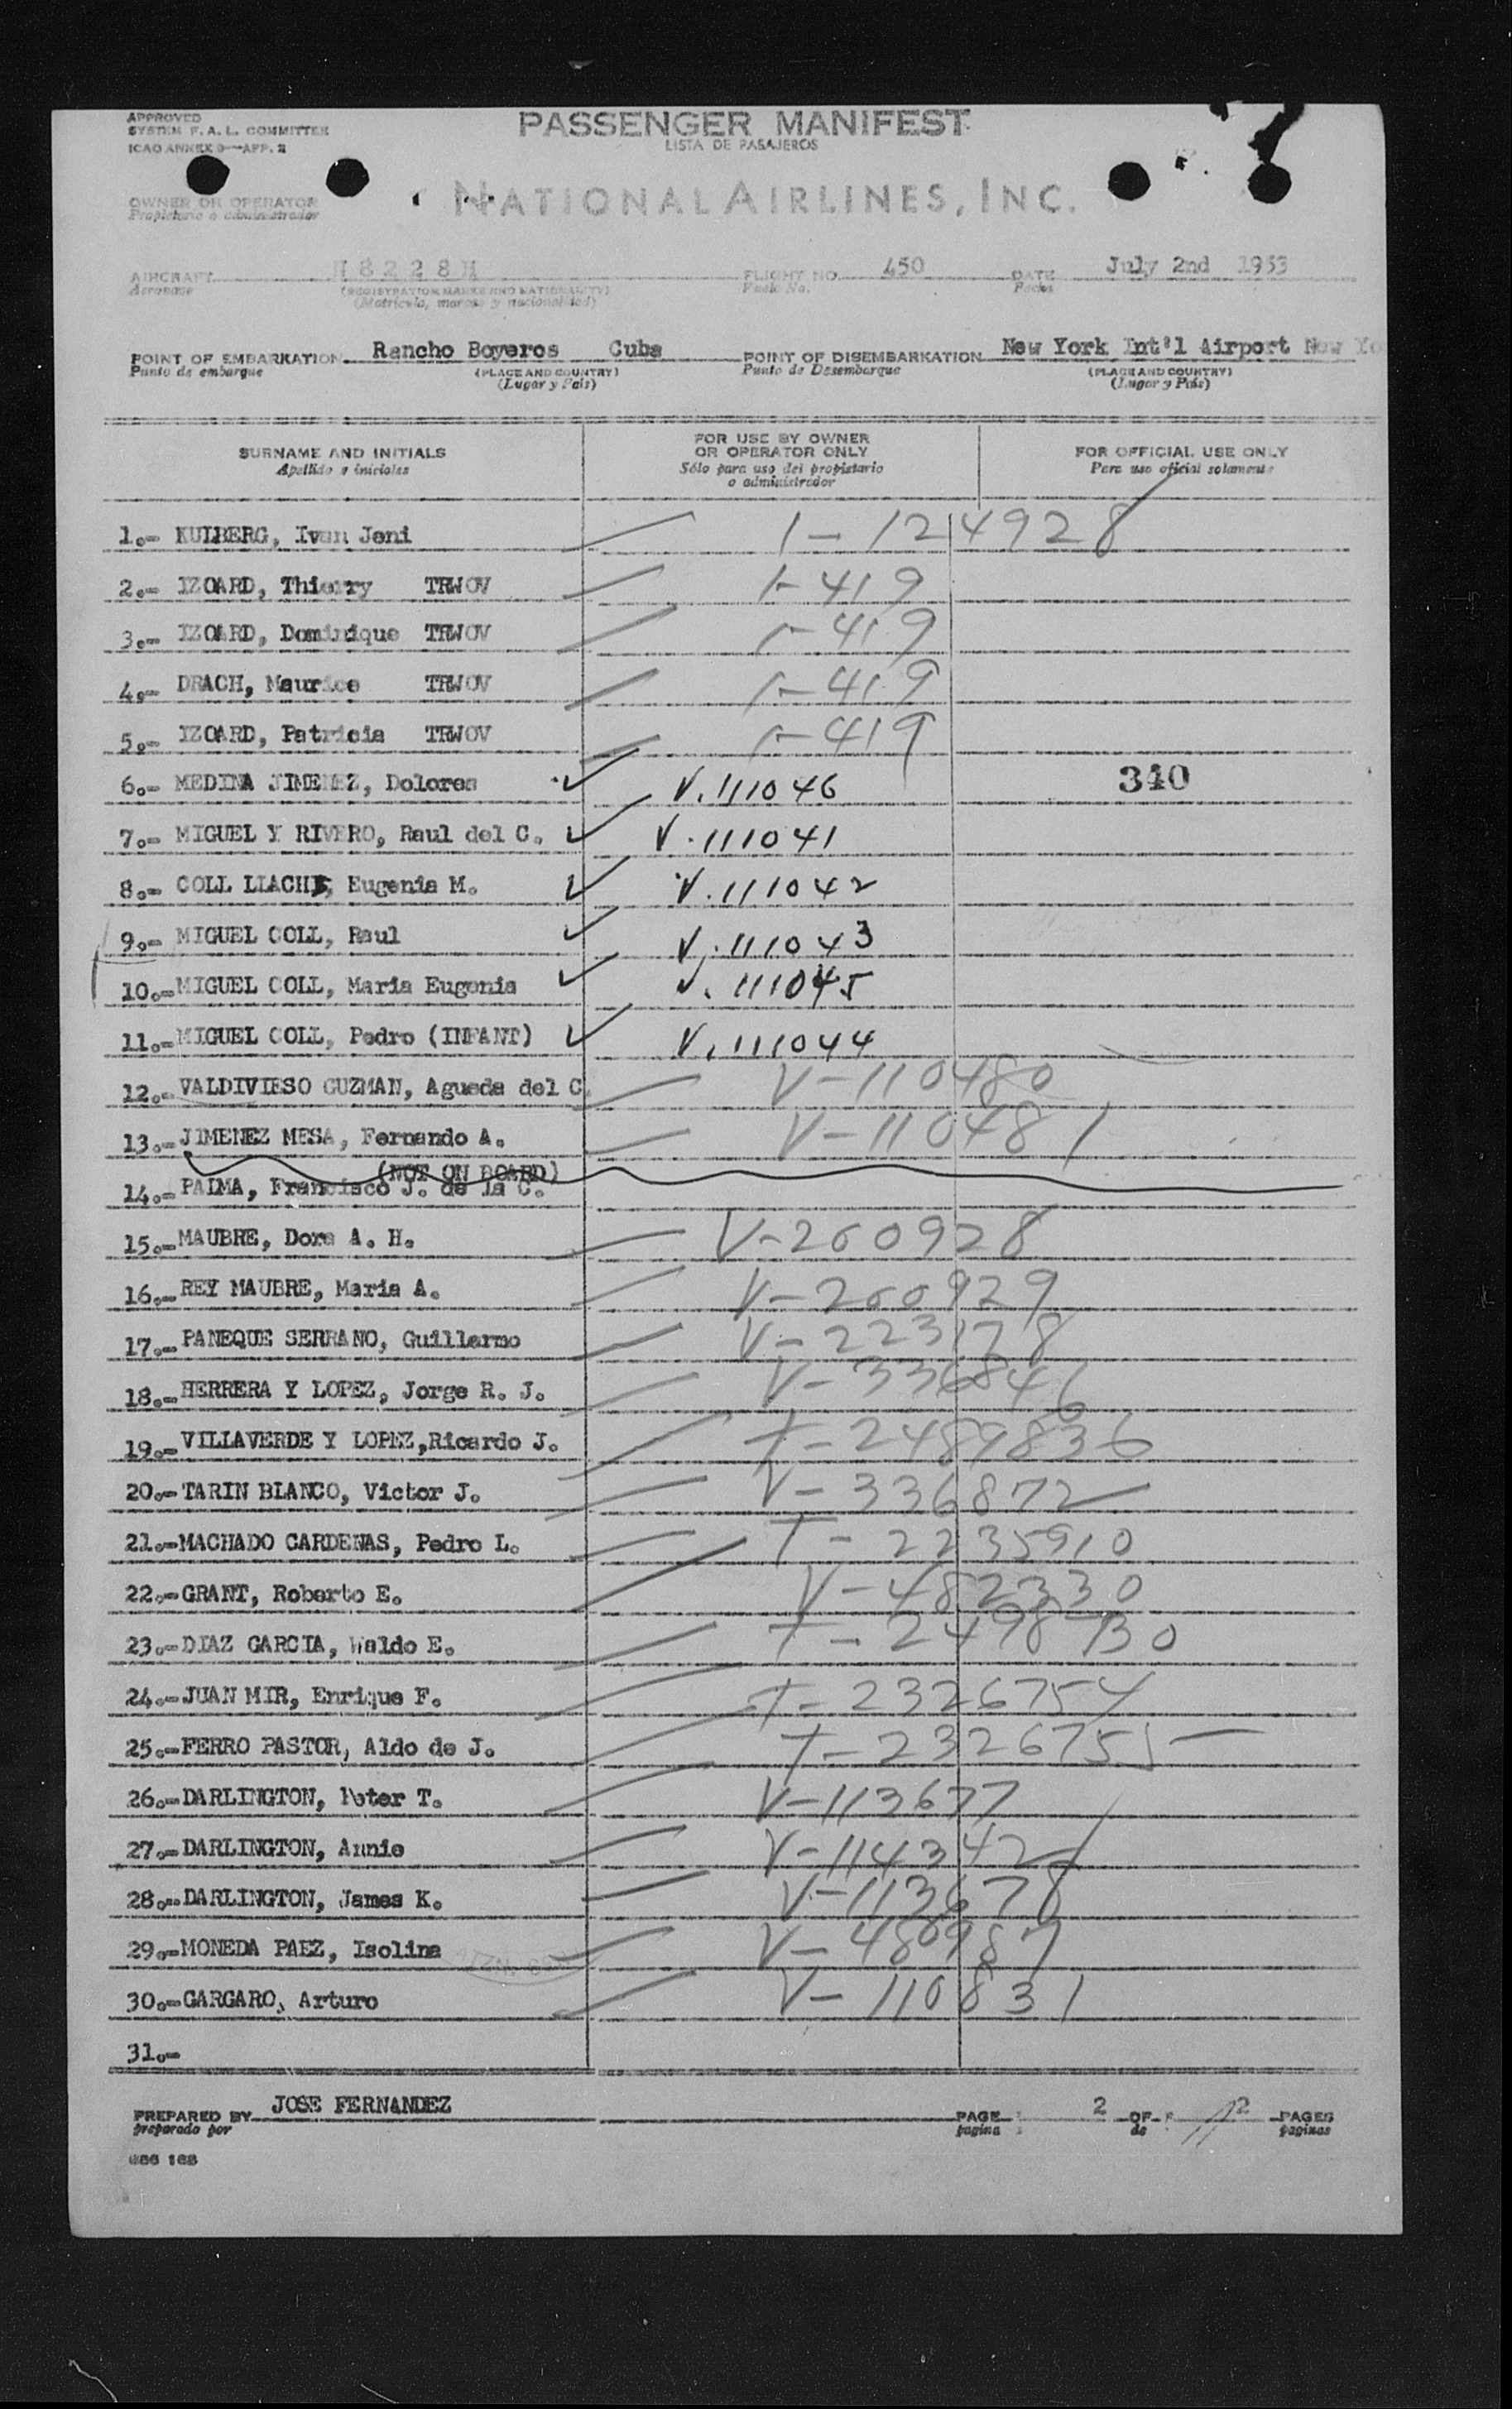 APPROVED
SYSTEM F. A. L. COMMITTEE
ICAO ANNEX 9—APP. 2
PASSENGER MANIFEST
LISTA DE PASAJEROS
OWNER OR OPERATOR
Propietario o administrador
NATIONAL AIRLINES, INC.
AIRCRAFT N 8 2 2 8 H FLIGHT NO. 450 DATE July 2nd 1953
Aeronave (REGISTRATION MARKS AND NATIONALITY) Vuelo No. Fecha
(Matrícula, marcas y nacionalidad)
POINT OF EMBARKATION Rancho Boyeros Cuba POINT OF DISEMBARKATION New York Int'l Airport New Yo
Punto de embarque (PLACE AND COUNTRY) Punto de Desembarque (PLACE AND COUNTRY)
(Lugar y País) (Lugar y País)
SURNAME AND INITIALS
Apellido e iniciales
FOR USE BY OWNER
OR OPERATOR ONLY
Sólo para uso del propietario
o administrador
FOR OFFICIAL USE ONLY
Para uso oficial solamente
1.- KULBERG, Ivan Jeni 1-124928
2.- IZOARD, Thierry TRWOV 1-419
3.- IZOARD, Dominique TRWOV 1-419
4.- DRACH, Maurice TRWOV 1-419
5.- IZOARD, Patricia TRWOV 1-419
6.- MEDINA JIMENEZ, Dolores V.111046 340
7.- MIGUEL Y RIVERO, Raul del C. V.111041
8.- COLL LLACH, Eugenia M. V.111042
9.- MIGUEL COLL, Raul V.111043
10.- MIGUEL COLL, Maria Eugenia V.111045
11.- MIGUEL COLL, Pedro (INFANT) V.111044
12.- VALDIVIESO GUZMAN, Agueda del C. V-110480
13.- JIMENEZ MESA, Fernando A. V-110481
(NOT ON BOARD)
14.- PALMA, Francisco J. de la C.
15.- MAUBRE, Dora A. H. V-260928
16.- REY MAUBRE, Maria A. V-260929
17.- PANEQUE SERRANO, Guillermo V-223178
18.- HERRERA Y LOPEZ, Jorge R. J. V-336846
19.- VILLAVERDE Y LOPEZ, Ricardo J. T-2489836
20.- TARIN BLANCO, Victor J. V-336872
21.- MACHADO CARDENAS, Pedro L. T-2235910
22.- GRANT, Roberto E. V-482330
23.- DIAZ GARCIA, Waldo E. T-2498730
24.- JUAN MIR, Enrique F. T-2326754
25.- FERRO PASTOR, Aldo de J. T-2326755
26.- DARLINGTON, Peter T. V-113677
27.- DARLINGTON, Annie V-114342
28.- DARLINGTON, James K. V-113678
29.- MONEDA PAEZ, Isolina V-480987
30.- GARGARO, Arturo V-110831
31.-
PREPARED BY JOSE FERNANDEZ PAGE 2 OF 2 PAGES
preparado por pagina de paginas